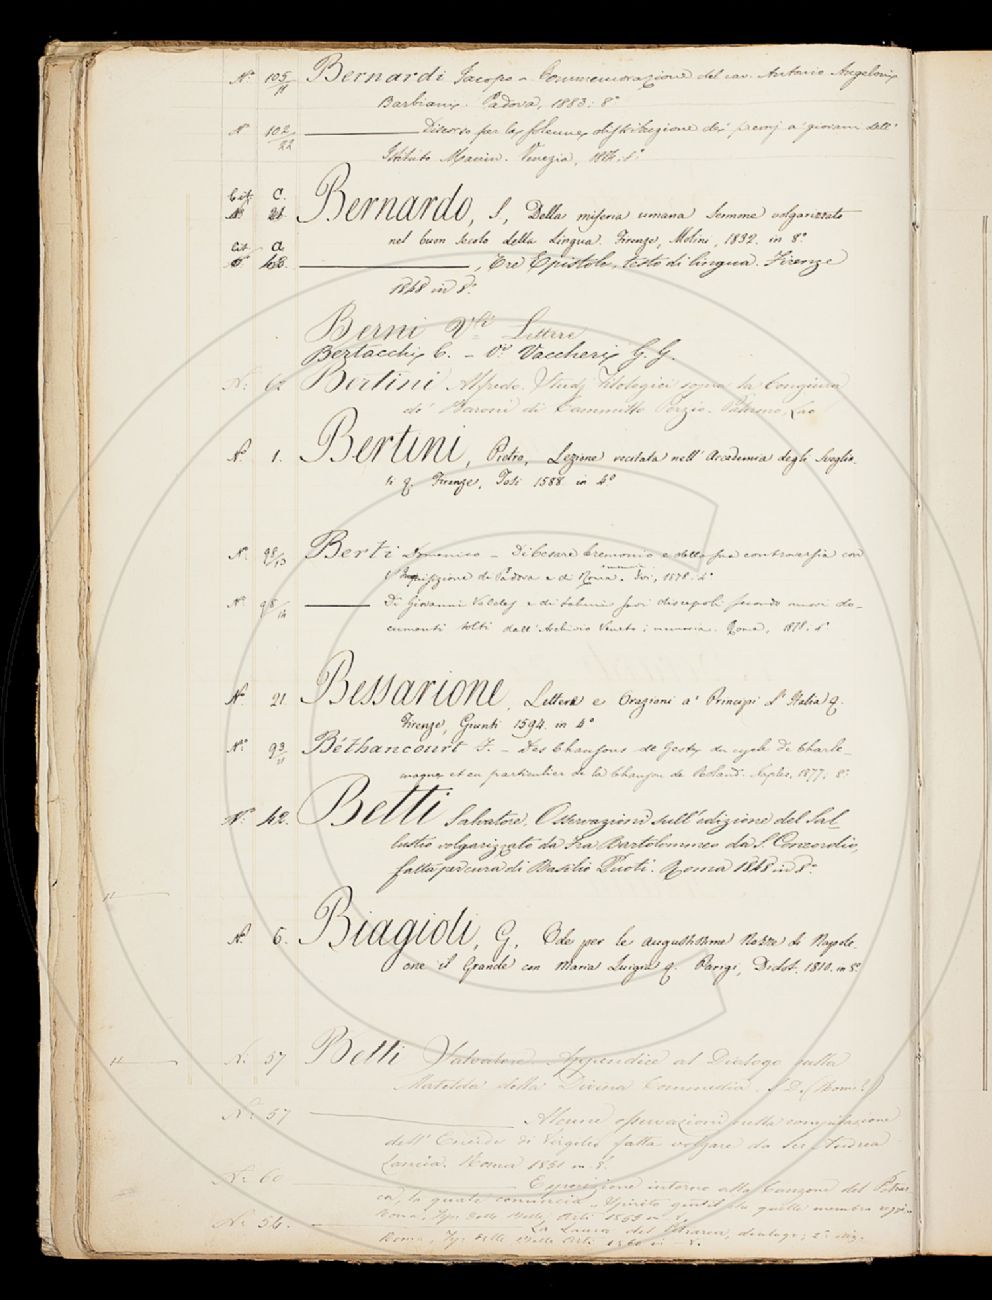 N.° 105/11 Bernardi Jacopo - Commemorazione del cav. Antonio Angeloni
Barbiani. Padova, 1883: 8°
N 102/22 ——— Discorso per la solenne distribuzione dei premj a' giovani dell'
Istituto Manin. Venezia,
Cit. C.
N.° 21. Bernardo, S., Della miseria umana Sermone volgarizzato
nel buon secolo della lingua. Firenze, Molini, 1832. in 8.°
Cit. a
48. ———, Tre Epistole, testo di lingua. Firenze
1848 in 8.°
Berni Lettere
Bertacchi C. - V.° Vaccheri G. G.
N.° Bertini Alfredo. Studj filologici sopra la Congiura
de' Baroni di Cammillo Porzio. Palermo,
N.° 1. Bertini, Pietro, Lezione recitata nell' Accademia degli Sveglia-
ti q. Firenze, Tosi 1588. in 4.°
N. 98/13 Berti Domenico - Di Cesare Cremonino e della sua controversia con
l'Inquisizione di Padova e di Roma. 1878. 4°
N.° 98/14 ——— Di Giovanni Valdes e di taluni suoi discepoli secondo nuovi do-
cumenti tolti dall' Archivio Veneto; memoria. Roma, 1878. 4°
N.° 21. Bessarione, Lettera e Orazioni a' Principi d' Italia q.
Firenze, Giunti 1594. in 4.°
N.° 93/11 Béthancourt F. - Des Chansons de Geste du cycle de Charle-
magne et en particulier de la Chanson de Roland. Naples, 1877; 8.°
N.° 42. Betti Salvatore, Osservazioni sull' edizione del Sal-
lustio volgarizzato da Fra Bartolommeo da S. Concordio,
fatta per cura di Basilio Puoti. Roma 1848 in 8.°
N.° 6. Biagioli, G., Ode per le augustissime Nozze di Napole-
one il Grande con Maria Luigia q. Parigi, Didot. 1810. in 8.°
N.° 57 Betti Salvatore Appendice al Dialogo sulla
Matelda della Divina Commedia. S. D. (Roma?)
N.° 57 ——— Alcune osservazioni sulla compilazione
dell' Eneide di Virgilio fatta volgare da Ser Andrea
Lancia. Roma 1851 in 8.°
N.° 60 ——— Esposizione intorno alla Canzone del Petrar-
ca, la quale comincia „Spirito gentil che quelle membra reggi„
Roma, Tip. delle Belle Arti 1859 in 8.
N.° 56. ——— La Laura del Petrarca, dialogo; 2.ª ediz.
Roma, Tip. delle Belle Arti 1860 in - 8.